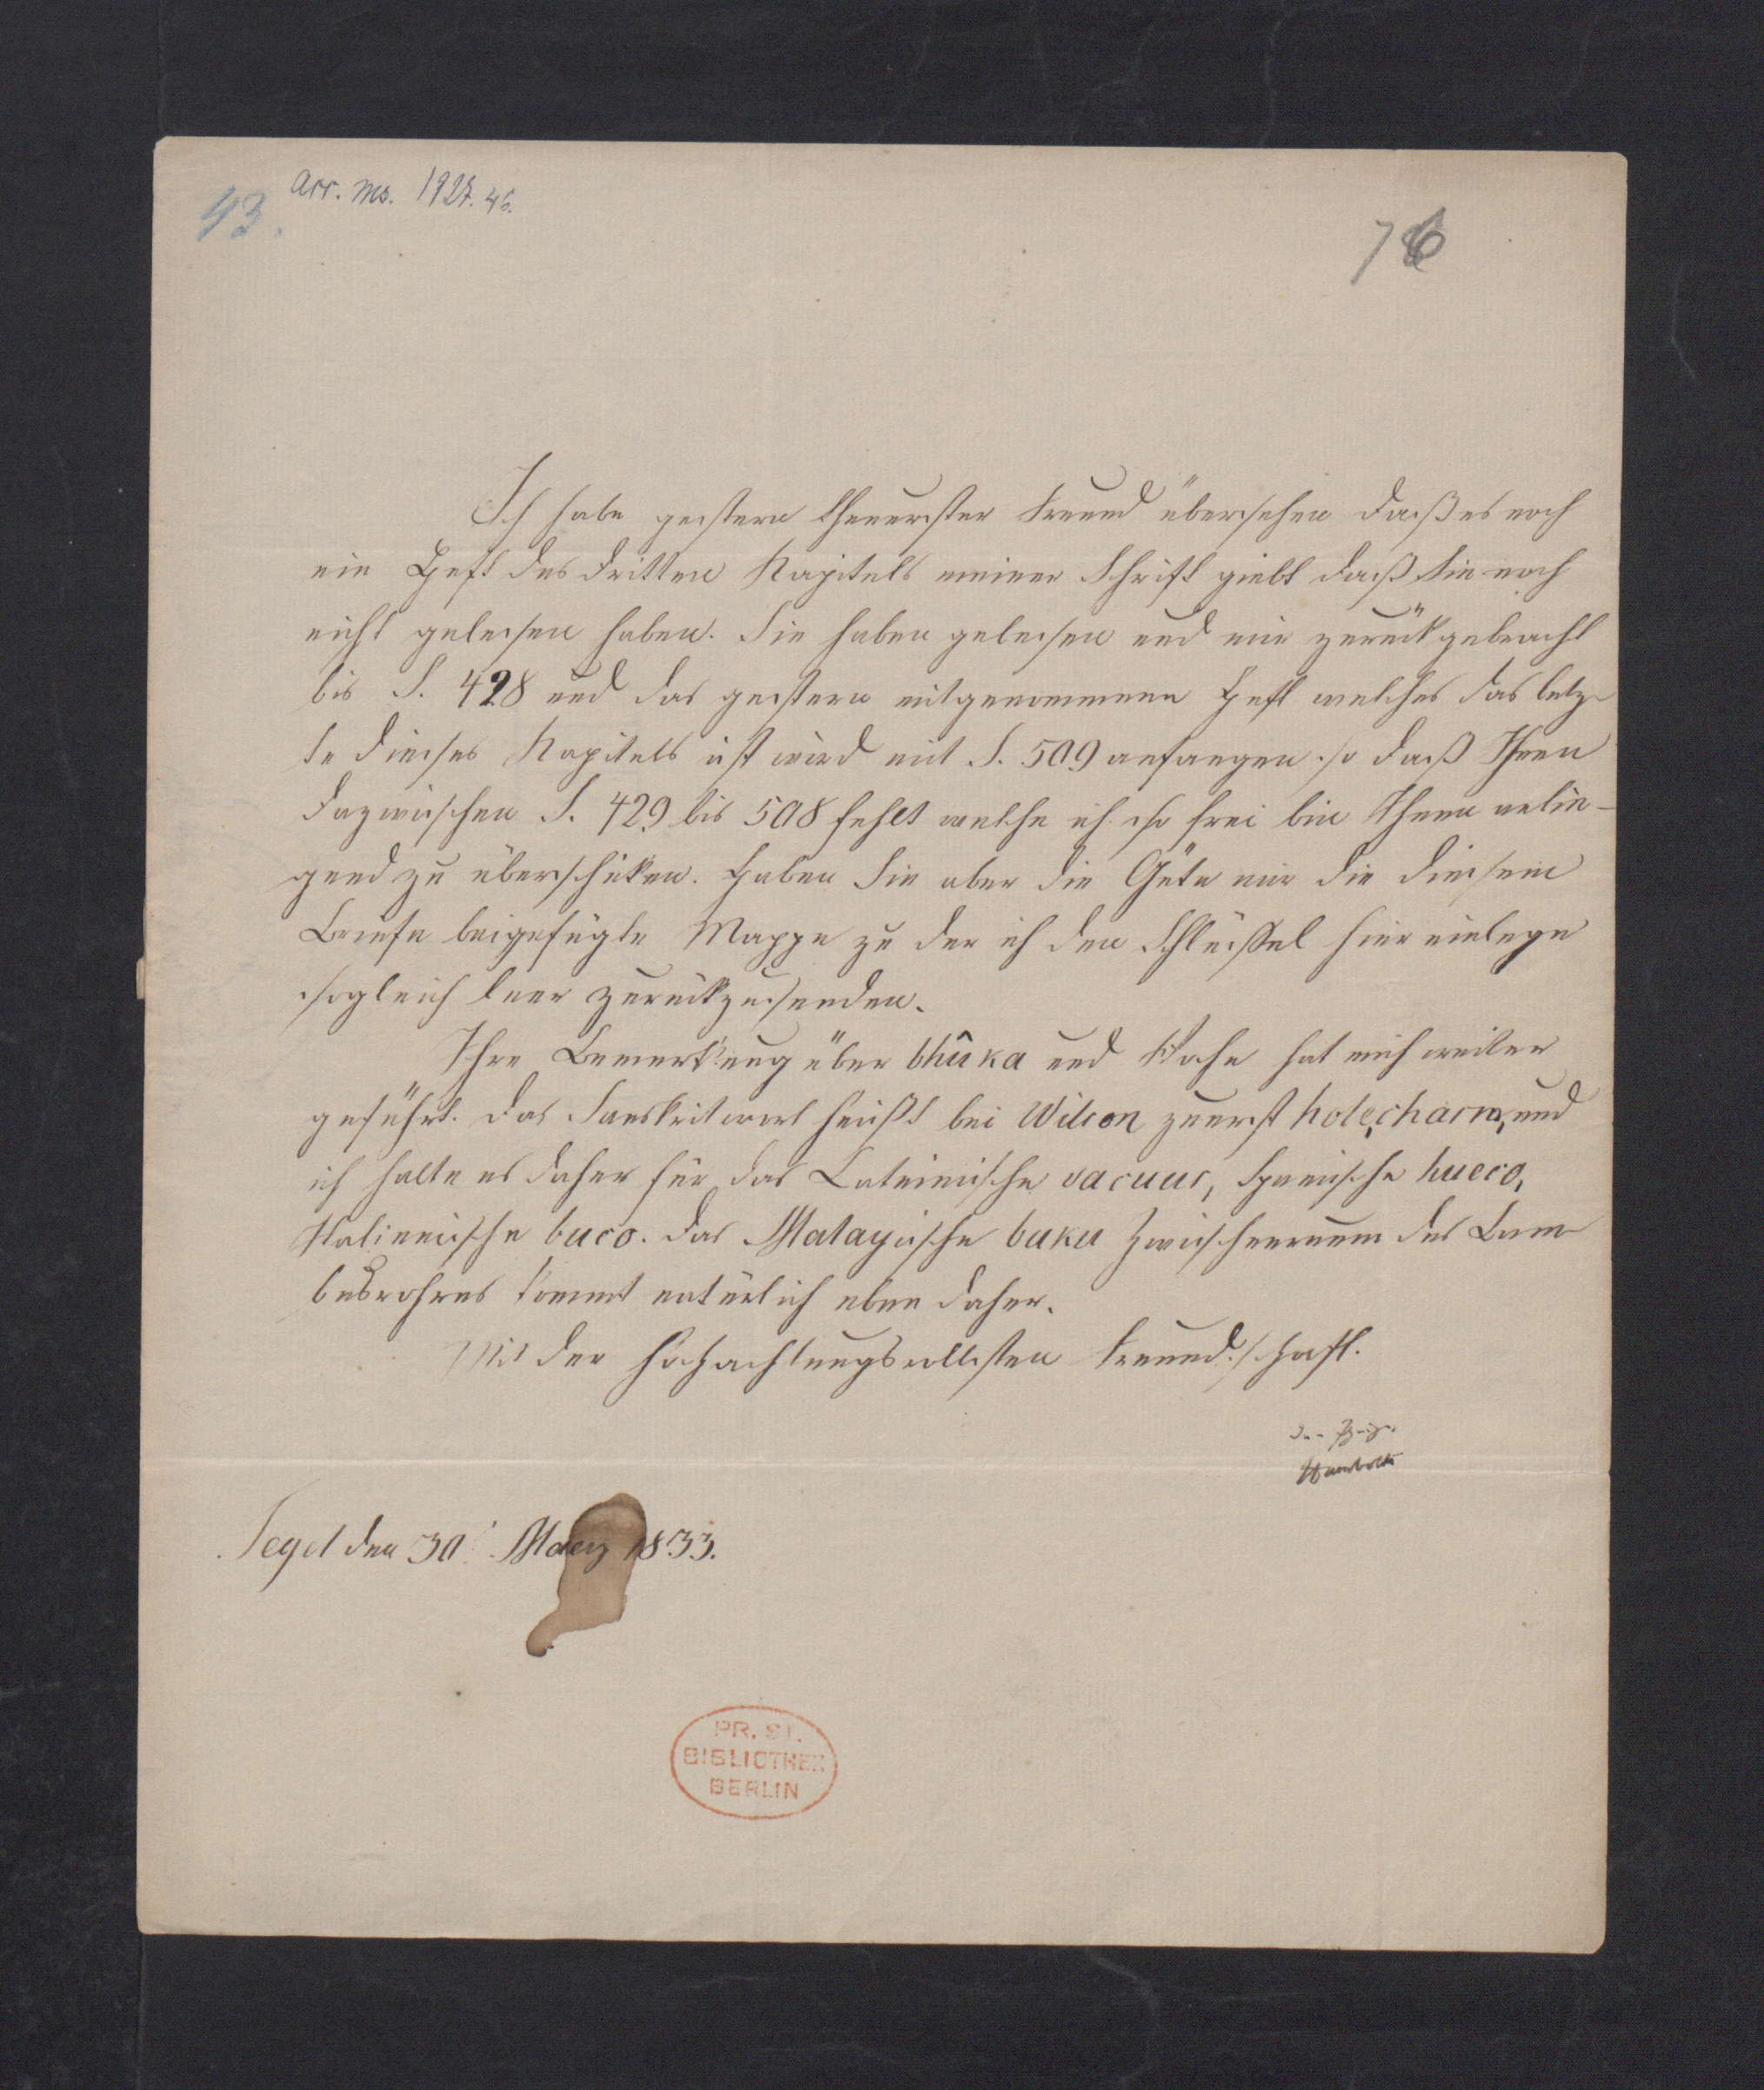 43.
acc. ms. 1927. 46.
76
Ich habe gestern theuerster Freund übersehen daß es noch
ein Heft des dritten Kapitels meiner Schrift giebt daß Sie noch
nicht gelesen haben. Sie haben gelesen und mir zurückgebracht
bis S. 428 und das gestern mitgenommene Heft welches das letz-
te dieses Kapitels ist wird mit S. 509 anfangen so daß Ihnen
dazwischen S. 429 bis 508 fehlt welche ich so frei bin Ihnen anlie-
gend zu überschicken. Haben Sie aber die Güte mir die diesem
Briefe beigefügte Mappe zu der ich den Schlüssel hier einlege
sogleich leer zurückzusenden.
Ihre Bemerkung über bhûka und hat mich weiter
geführt. Das Sanskritwort heißt bei Wilson zuerst hole, charm, und
ich halte es daher für das Lateinische vacuus, Spanische hueco,
Italienische buco. Das Malayische buku Zwischenraum des Bam-
busrohres kommt natürlich eben daher.
Mit der hochachtungsvollsten Freundschaft.
der Ihrige
Humboldt
Tegel den 30. Maerz 1833.
PR. ST.
BIBLIOTHEK
BERLIN